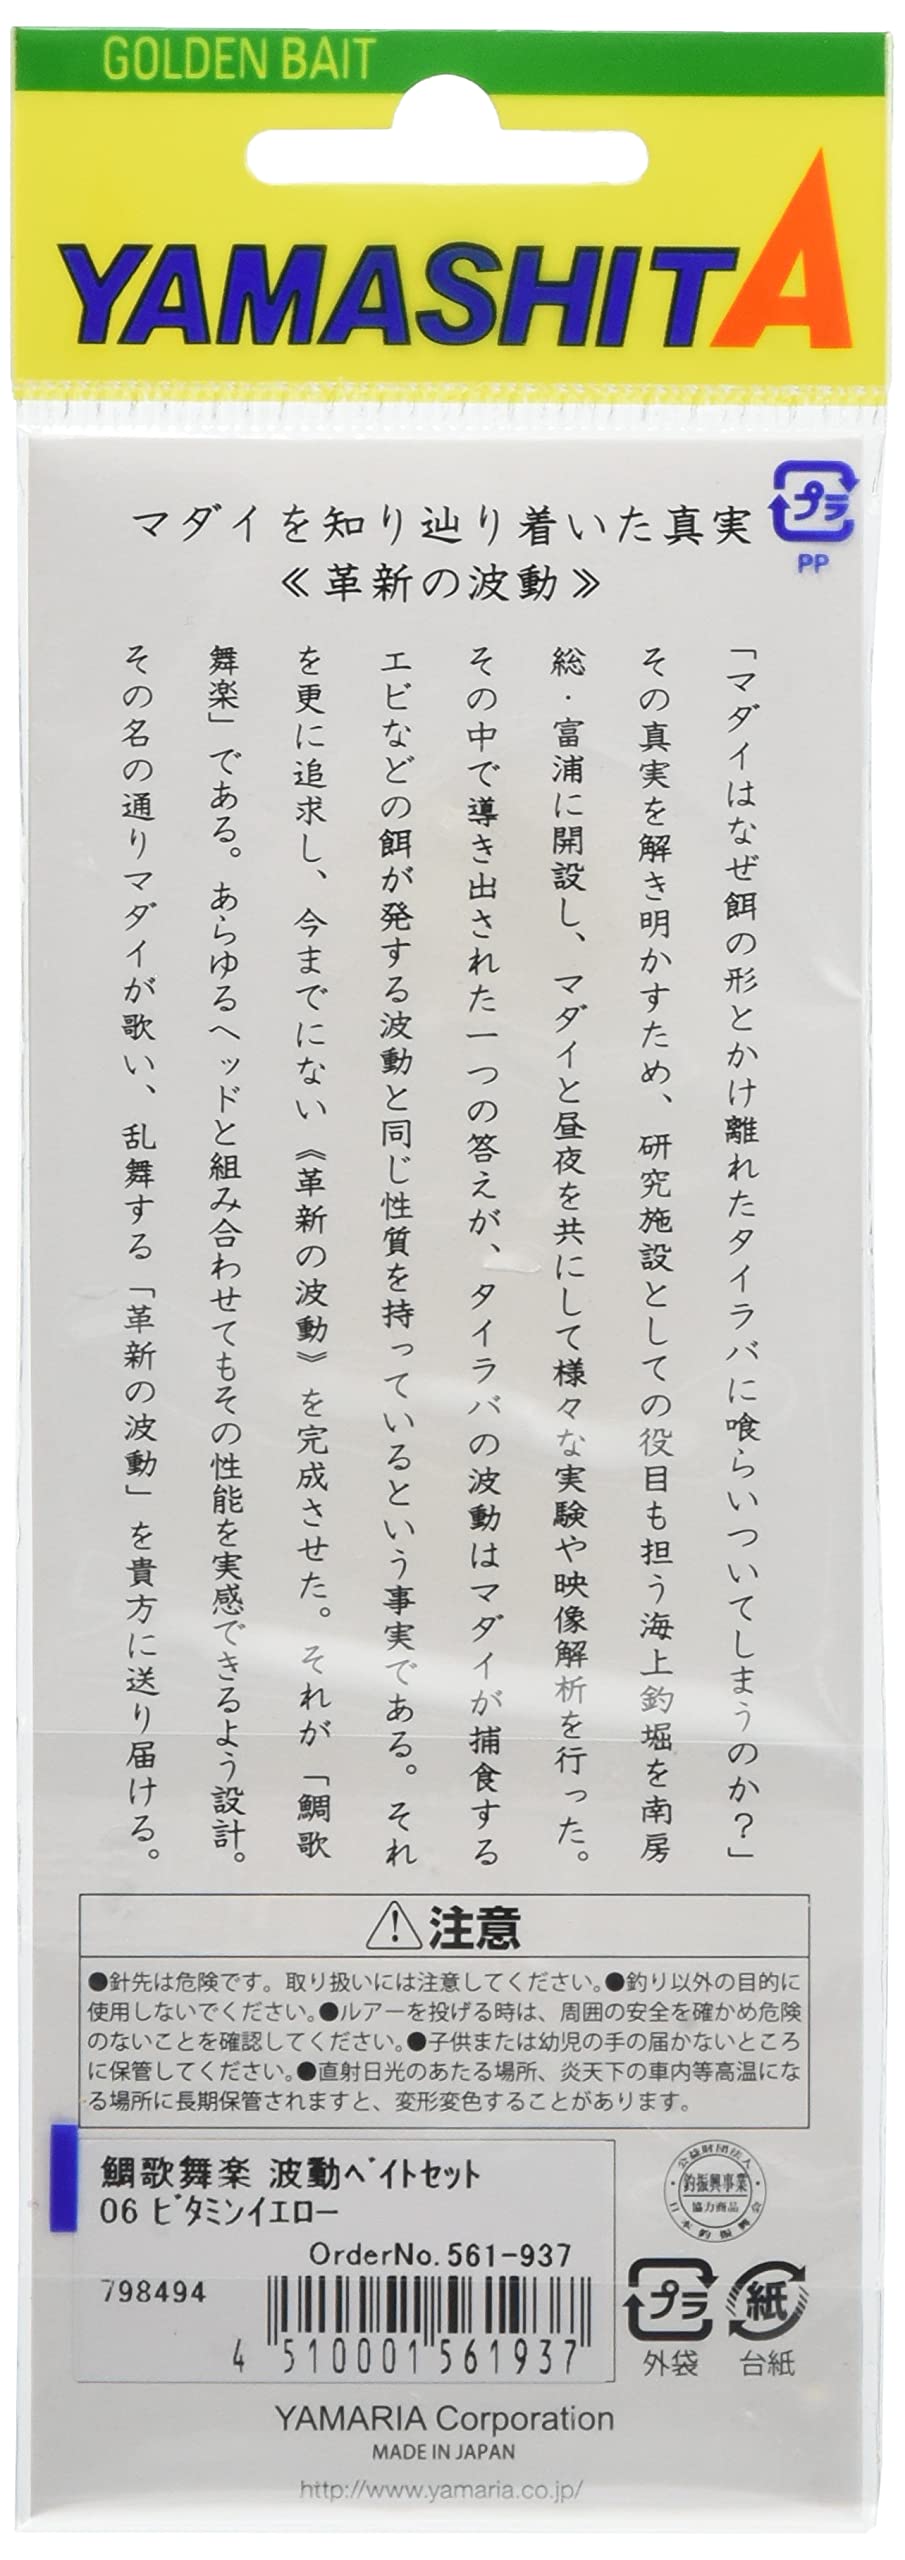 GOLDEN BAIT
YAMASHITA
マダイを知り辿り着いた真実
≪革新の波動≫
プラ
PP
「マダイはなぜ餌の形とかけ離れたタイラバに喰らいついてしまうのか？」
その真実を解き明かすため、研究施設としての役目も担う海上釣堀を南房
総・富浦に開設し、マダイと昼夜を共にして様々な実験や映像解析を行った。
その中で導き出された一つの答えが、タイラバの波動はマダイが捕食する
エビなどの餌が発する波動と同じ性質を持っているという事実である。それ
を更に追求し、今までにない《革新の波動》を完成させた。それが「鯛歌
舞楽」である。あらゆるヘッドと組み合わせてもその性能を実感できるよう設計。
その名の通りマダイが歌い、乱舞する「革新の波動」を貴方に送り届ける。
注意
●針先は危険です。取り扱いには注意してください。●釣り以外の目的に
使用しないでください。●ルアーを投げる時は、周囲の安全を確かめ危険
のないことを確認してください。●子供または幼児の手の届かないところ
に保管してください。●直射日光のあたる場所、炎天下の車内等高温にな
る場所に長期保管されますと、変形変色することがあります。
鯛歌舞楽 波動ﾍﾞｲﾄｾｯﾄ
06 ﾋﾞﾀﾐﾝｲｴﾛｰ
OrderNo. 561-937
798494
4 510001 561937
公益財団法人
釣振興事業
協力商品
日本釣振興会
プラ
外袋
紙
台紙
YAMARIA Corporation
MADE IN JAPAN
http://www.yamaria.co.jp/